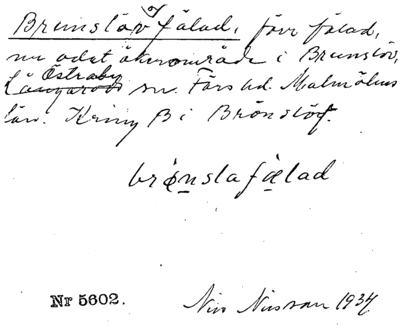 Brunslöv fälad, förr fälad,
nu odat åkerområde i Brunslöv,
Östraby
Långaröds sn. Färs hd. Malmöhus
län. Kring B i Brönslöv.
brønslafælad
Nr 5602. Nils Nilsson 1934